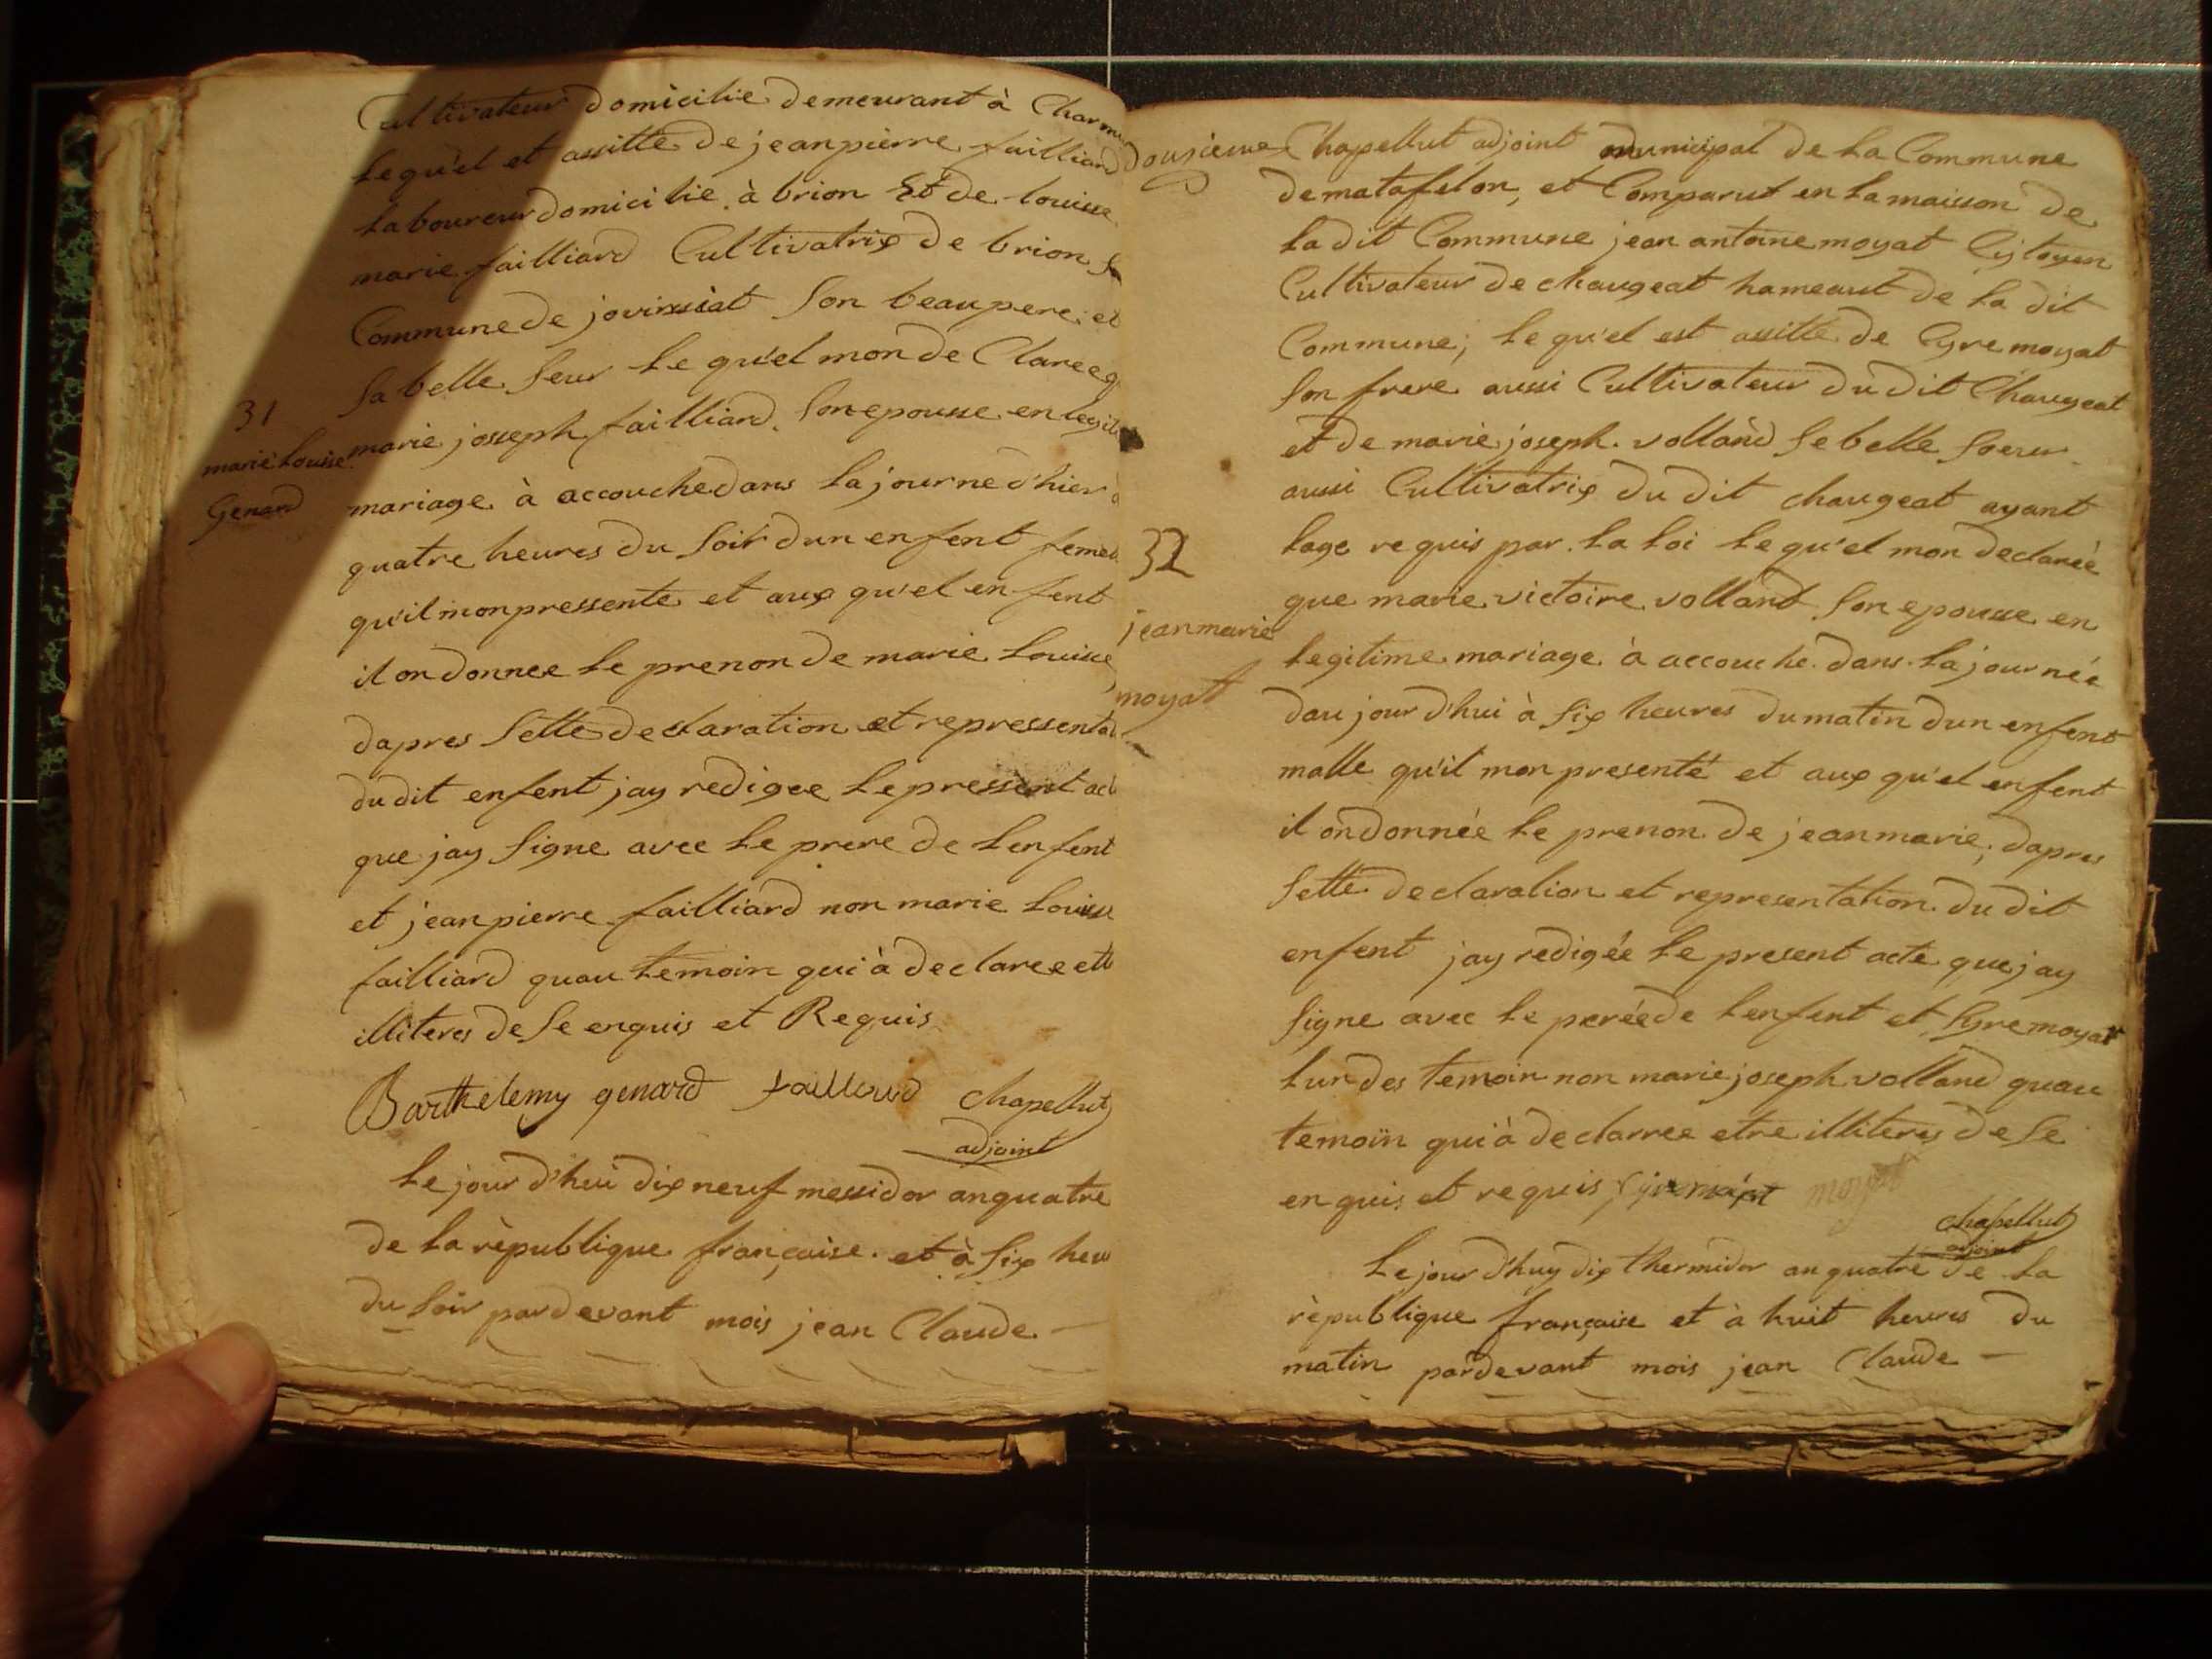 Cultivateur domicilie demeurant à
le qu'el et assitté de jean pierre failliard
laboureur domicilie à brion Et de louisse
marie failliard Cultivatrix de brion
Commune de jovinssiat son beau pere et
sa belle seur le qu'el mon de Claree
31
marie josseph failliard son epousse en
marie Louise
Genard
mariage à accouche dans la journe d'hier
quatre heures du soir dun enfent
qu'il mon pressente et aux qu'el enfent
il on donnee le prenon de marie Louisse
dapres sette declaration et
du dit enfent jay redigee le pressent
que jay signe avec le prere de lenfent
et jean pierre failliard non marie Louisse
failliard quau temoin qui à declaree
illiteres de se enquis et Requis
Barthelemy genard failliard chapellut
adjoint
le jour d'hui dix neuf messidor an quatre
de la rèpublique française et à six
du soir pardevant mois jean Claude
douzieme
Chapellut adjoint municipal de la Commune
de matafelon, et Comparut en la maisson de
la dit Commune jean antoine moyat Cytoyen
Cultivateur de chaugeat hameaut de la dit
Commune; le qu'el est assitté de Cyre moyat
son frere aussi Cultivateur du dit Chaugeat
et de marie joseph volland se belle soeur
aussi Cultivatrix du dit chaugeat ayant
lage requis par la loi le qu'el mon declarèe
32
que marie victoire volland son epousse en
jean marie
legitime mariage à accouché dans la journée
moyat
dau jour d'hui à six heures du matin dun enfent
malle qu'il mon presenté et aux qu'el enfent
il on donnée le prenon de jean marie, dapres
sette declaration et representation du dit
enfent jay redigée le present acte que jay
signe avec le perée de lenfent et Cyre moyat
lun des temoin non marie joseph volland quau
temoin qui à declarree etre illiteres de se
en quis et requis moyat
chapellut
adjoint
le jour d'huy dix thermidor an quatre de la
rèpublique française et à huit heures du
matin pardevant mois jean Claude